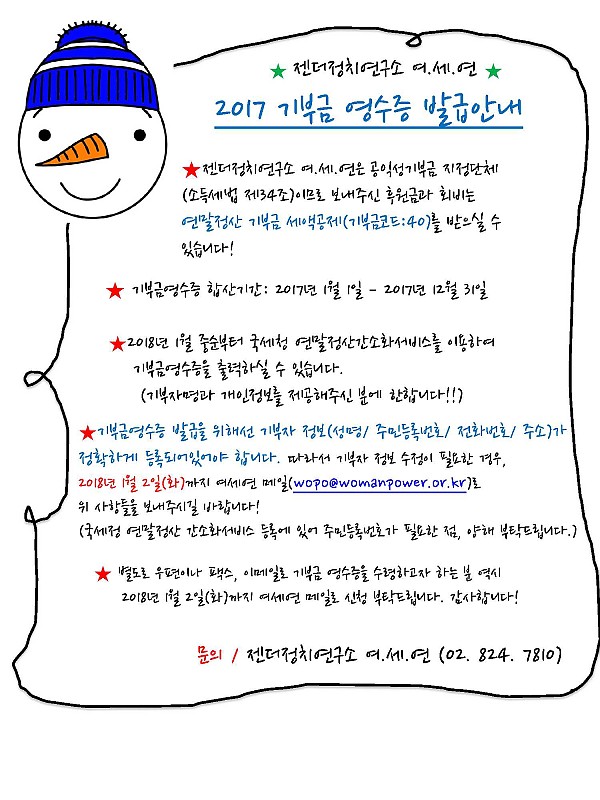 ★ 젠더정치연구소 여.세.연 ★
2017 기부금 영수증 발급안내
★젠더정치연구소 여.세.연은 공익성기부금 지정단체
(소득세법 제34조)이므로 보내주신 후원금과 회비는
연말정산 기부금 세액공제(기부금코드:40)를 받으실 수
있습니다!
★ 기부금영수증 합산기간: 2017년 1월 1일 - 2017년 12월 31일
★2018년 1월 중순부터 국세청 연말정산간소화서비스를 이용하여
기부금영수증을 출력하실 수 있습니다.
(기부자명과 개인정보를 제공해주신 분에 한합니다!!)
★기부금영수증 발급을 위해선 기부자 정보(성명/ 주민등록번호/ 전화번호/ 주소)가
정확하게 등록되어있어야 합니다. 따라서 기부자 정보 수정이 필요한 경우,
2018년 1월 2일(화)까지 여세연 메일(wopo@womanpower.or.kr)로
위 사항들을 보내주시길 바랍니다!
(국세청 연말정산 간소화서비스 등록에 있어 주민등록번호가 필요한 점, 양해 부탁드립니다.)
★ 별도로 우편이나 팩스, 이메일로 기부금 영수증을 수령하고자 하는 분 역시
2018년 1월 2일(화)까지 여세연 메일로 신청 부탁드립니다. 감사합니다!
문의 / 젠더정치연구소 여.세.연 (02. 824. 7810)